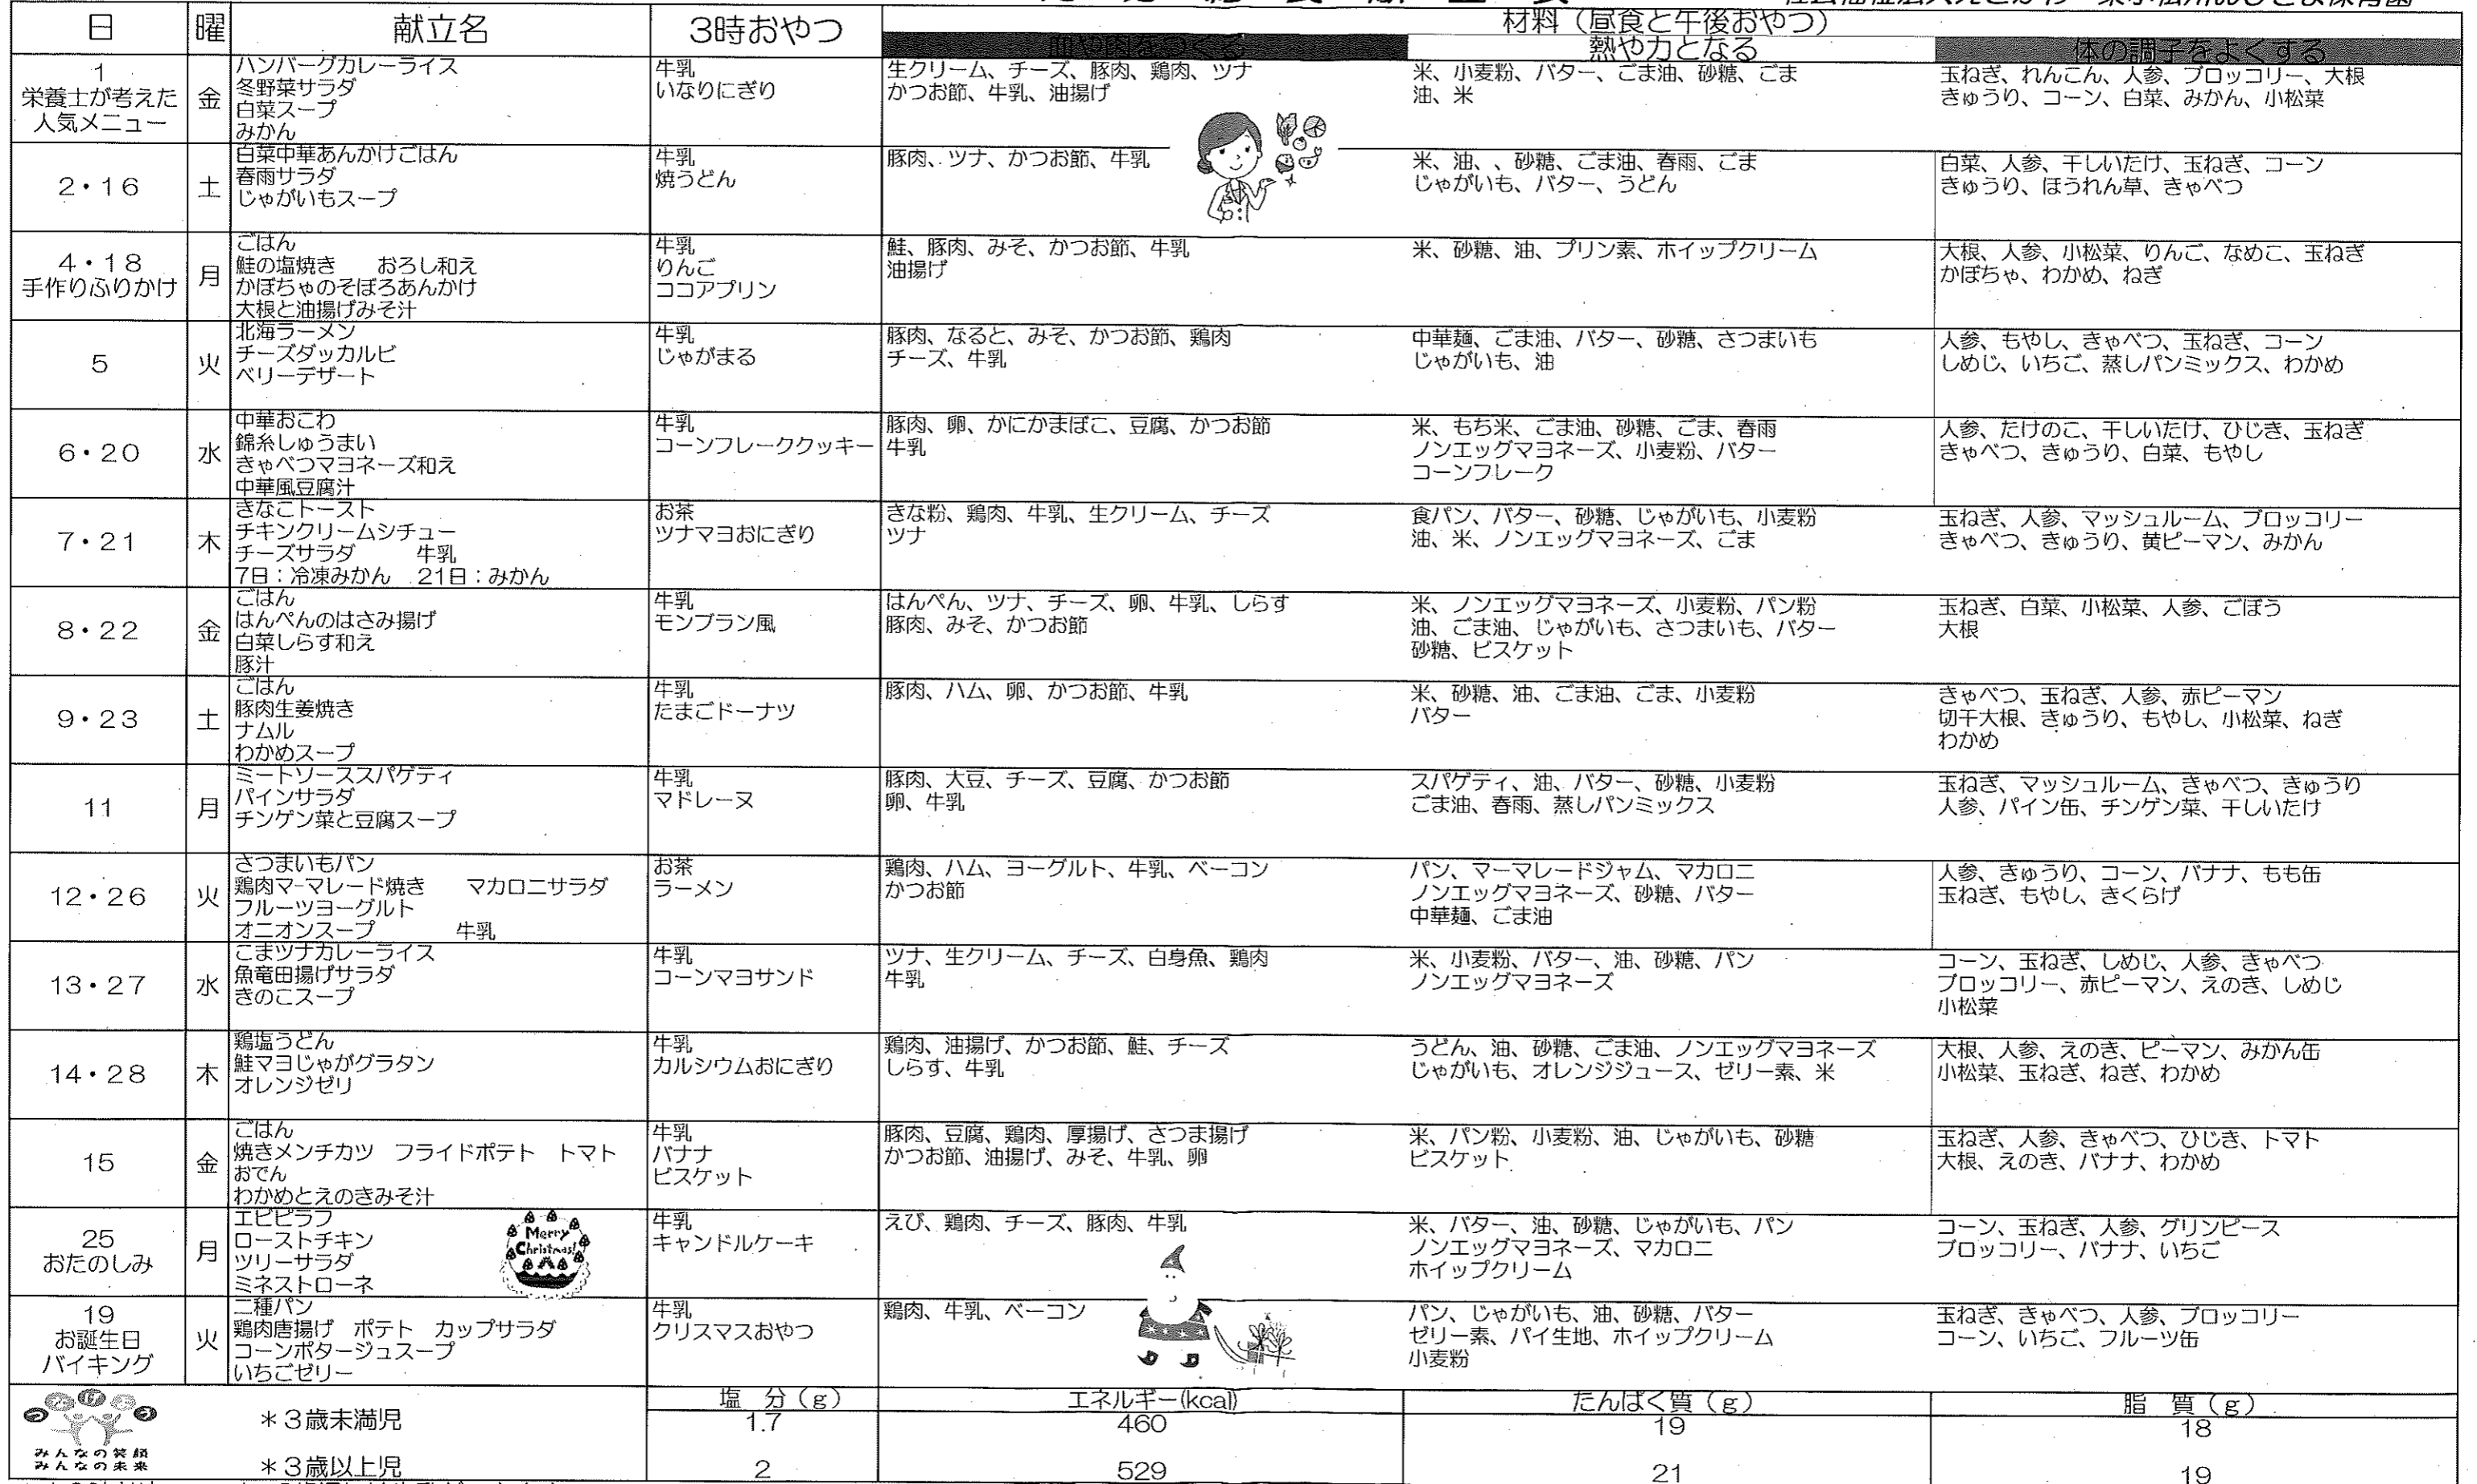 日 曜 献立名 3時おやつ 材料（昼食と午後おやつ）
熱や力となる 体の調子をよくする
1
栄養士が考えた
人気メニュー
金
ハンバーグカレーライス
冬野菜サラダ
白菜スープ
みかん
牛乳
いなりにぎり
生クリーム、チーズ、豚肉、鶏肉、ツナ
かつお節、牛乳、油揚げ
米、小麦粉、バター、ごま油、砂糖、ごま
油、米
玉ねぎ、れんこん、人参、ブロッコリー、大根
きゅうり、コーン、白菜、みかん、小松菜
2・16
土
白菜中華あんかけごはん
春雨サラダ
じゃがいもスープ
牛乳
焼うどん
豚肉、ツナ、かつお節、牛乳
米、油、、砂糖、ごま油、春雨、ごま
じゃがいも、バター、うどん
白菜、人参、干しいたけ、玉ねぎ、コーン
きゅうり、ほうれん草、きゃべつ
4・18
手作りふりかけ
月
ごはん
鮭の塩焼き おろし和え
かぼちゃのそぼろあんかけ
大根と油揚げみそ汁
牛乳
りんご
ココアプリン
鮭、豚肉、みそ、かつお節、牛乳
油揚げ
米、砂糖、油、プリン素、ホイップクリーム
大根、人参、小松菜、りんご、なめこ、玉ねぎ
かぼちゃ、わかめ、ねぎ
5
火
北海ラーメン
チーズダッカルビ
ベリーデザート
牛乳
じゃがまる
豚肉、なると、みそ、かつお節、鶏肉
チーズ、牛乳
中華麺、ごま油、バター、砂糖、さつまいも
じゃがいも、油
人参、もやし、きゃべつ、玉ねぎ、コーン
しめじ、いちご、蒸しパンミックス、わかめ
6・20
水
中華おこわ
錦糸しゅうまい
きゃべつマヨネーズ和え
中華風豆腐汁
牛乳
コーンフレーククッキー
豚肉、卵、かにかまぼこ、豆腐、かつお節
牛乳
米、もち米、ごま油、砂糖、ごま、春雨
ノンエッグマヨネーズ、小麦粉、バター
コーンフレーク
人参、たけのこ、干しいたけ、ひじき、玉ねぎ
きゃべつ、きゅうり、白菜、もやし
7・21
木
きなこトースト
チキンクリームシチュー
チーズサラダ 牛乳
7日：冷凍みかん 21日：みかん
お茶
ツナマヨおにぎり
きな粉、鶏肉、牛乳、生クリーム、チーズ
ツナ
食パン、バター、砂糖、じゃがいも、小麦粉
油、米、ノンエッグマヨネーズ、ごま
玉ねぎ、人参、マッシュルーム、ブロッコリー
きゃべつ、きゅうり、黄ピーマン、みかん
8・22
金
ごはん
はんぺんのはさみ揚げ
白菜しらす和え
豚汁
牛乳
モンブラン風
はんぺん、ツナ、チーズ、卵、牛乳、しらす
豚肉、みそ、かつお節
米、ノンエッグマヨネーズ、小麦粉、パン粉
油、ごま油、じゃがいも、さつまいも、バター
砂糖、ビスケット
玉ねぎ、白菜、小松菜、人参、ごぼう
大根
9・23
土
ごはん
豚肉生姜焼き
ナムル
わかめスープ
牛乳
たまごドーナツ
豚肉、ハム、卵、かつお節、牛乳
米、砂糖、油、ごま油、ごま、小麦粉
バター
きゃべつ、玉ねぎ、人参、赤ピーマン
切干大根、きゅうり、もやし、小松菜、ねぎ
わかめ
11
月
ミートソーススパゲティ
パインサラダ
チンゲン菜と豆腐スープ
牛乳
マドレーヌ
豚肉、大豆、チーズ、豆腐、かつお節
卵、牛乳
スパゲティ、油、バター、砂糖、小麦粉
ごま油、春雨、蒸しパンミックス
玉ねぎ、マッシュルーム、きゃべつ、きゅうり
人参、パイン缶、チンゲン菜、干しいたけ
12・26
火
さつまいもパン
鶏肉マーマレード焼き マカロニサラダ
フルーツヨーグルト
オニオンスープ 牛乳
お茶
ラーメン
鶏肉、ハム、ヨーグルト、牛乳、ベーコン
かつお節
パン、マーマレードジャム、マカロニ
ノンエッグマヨネーズ、砂糖、バター
中華麺、ごま油
人参、きゅうり、コーン、バナナ、もも缶
玉ねぎ、もやし、きくらげ
13・27
水
こまツナカレーライス
魚竜田揚げサラダ
きのこスープ
牛乳
コーンマヨサンド
ツナ、生クリーム、チーズ、白身魚、鶏肉
牛乳
米、小麦粉、バター、油、砂糖、パン
ノンエッグマヨネーズ
コーン、玉ねぎ、しめじ、人参、きゃべつ
ブロッコリー、赤ピーマン、えのき、しめじ
小松菜
14・28
木
鶏塩うどん
鮭マヨじゃがグラタン
オレンジゼリ
牛乳
カルシウムおにぎり
鶏肉、油揚げ、かつお節、鮭、チーズ
しらす、牛乳
うどん、油、砂糖、ごま油、ノンエッグマヨネーズ
じゃがいも、オレンジジュース、ゼリー素、米
大根、人参、えのき、ピーマン、みかん缶
小松菜、玉ねぎ、ねぎ、わかめ
15
金
ごはん
焼きメンチカツ フライドポテト トマト
おでん
わかめとえのきみそ汁
牛乳
バナナ
ビスケット
豚肉、豆腐、鶏肉、厚揚げ、さつま揚げ
かつお節、油揚げ、みそ、牛乳、卵
米、パン粉、小麦粉、油、じゃがいも、砂糖
ビスケット
玉ねぎ、人参、きゃべつ、ひじき、トマト
大根、えのき、バナナ、わかめ
25
おたのしみ
月
エビピラフ
ローストチキン
ツリーサラダ
ミネストローネ
Merry
Christmas!
牛乳
キャンドルケーキ
えび、鶏肉、チーズ、豚肉、牛乳
米、バター、油、砂糖、じゃがいも、パン
ノンエッグマヨネーズ、マカロニ
ホイップクリーム
コーン、玉ねぎ、人参、グリンピース
ブロッコリー、バナナ、いちご
19
お誕生日
バイキング
火
二種パン
鶏肉唐揚げ ポテト カップサラダ
コーンポタージュスープ
いちごゼリー
牛乳
クリスマスおやつ
鶏肉、牛乳、ベーコン
パン、じゃがいも、油、砂糖、バター
ゼリー素、パイ生地、ホイップクリーム
小麦粉
玉ねぎ、きゃべつ、人参、ブロッコリー
コーン、いちご、フルーツ缶
塩 分（g） エネルギー(kcal) たんぱく質（g） 脂 質（g）
みんなの笑顔
みんなの未来
＊3歳未満児 1.7 460 19 18
＊3歳以上児 2 529 21 19